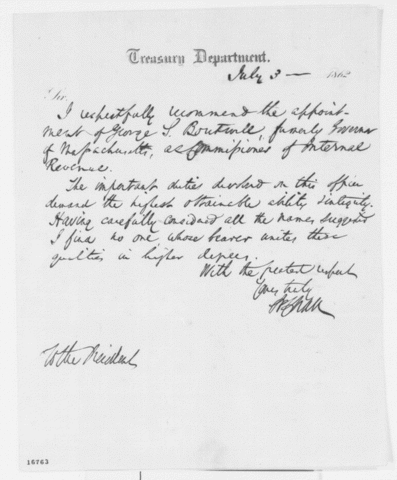 Treasury Department.
July 3 — 1862
Sir,
I respectfully recommend the appoint-
ment of George S. Boutwell, formerly Governor
of Massachusetts, as Commissioner of Internal
Revenue.
The important duties devolved on this officer
demand the highest obtainable ability & integrity.
Having carefully considered all the names suggested
I find no one, whose bearer unites these
qualities in higher degrees.
With the greatest respect
Yours truly
To the President
16763